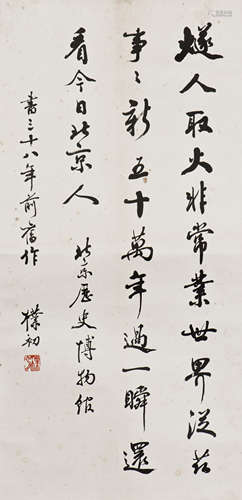 燧人取火非常業世界從茲
事〻新五十萬年過一瞬還
看今日北京人 北京歷史博物館
書三十八年前舊作 樸初